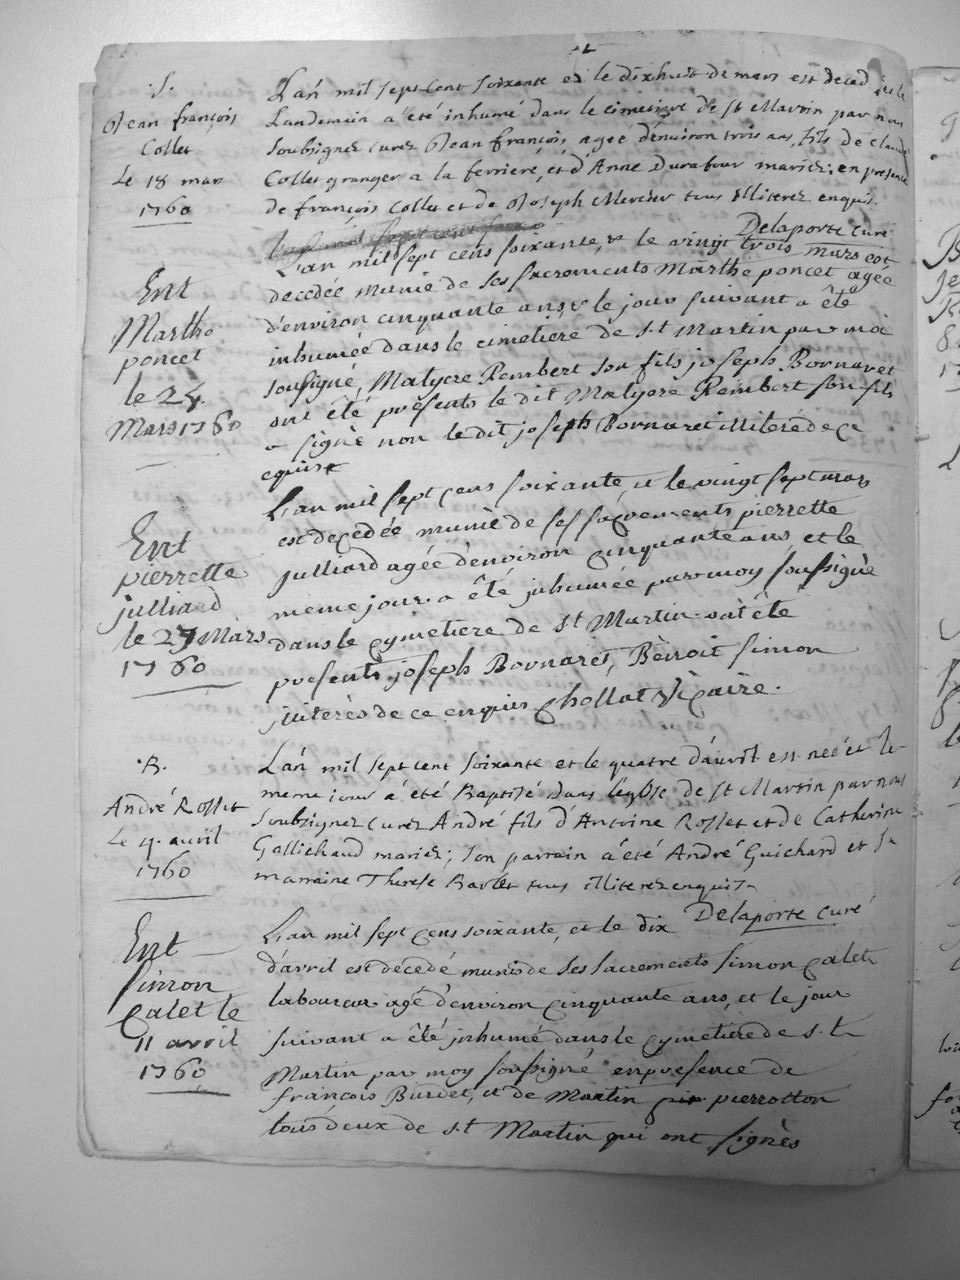 .S.
Jean françois
Collet
Le 18 mars
1760
L'an mil sept cent soixante et le dixhuit de mars est deced et le
Landemain a été inhumé dans le cimetiere de St Martin par nous
soubsignez curez Jean françois, agee d'environ trois ans, fils de claude
Collet granger a la ferriere, et d'Anne Durafour mariez; en presence
de françois Collet et de Joseph Mercier tous illiterez enquis.
Delaporte curé
Ent
Marthe
poncet
le 24
Mars 1760
L'an mil sept cens soixante, & le vingt trois mars est
decedée munie de ses sacrements Marthe poncet agée
d'environ cinquante ans, & le jour suivant a été
inhumée dans le cimetiere de s.t Martin par moi
sousigné, Matyere Rembert son fils joseph Bornaret
ont été presents le dit Matyere Rembert son fils
a signé non le dit joseph Bornaret illiteré de ce
equis
Ent
pierrette
julliard
le 27 Mars
1760
L'an mil sept cens soixante et le vingt sept mars
est decedée munie de ses sacrements pierrette
julliard agée d'environ cinquante ans et le
meme jour a été inhumée par moy soussigné
dans le cymetiere de s.t Martin ont été
presents joseph Bornaret, Benoit simon
de ce enquis Chollat Vicaire.
.B.
André Rosset
Le 4. avril
1760
L'an mil sept cent soixante et le quatre d'avril est neé et le
meme jour a été Baptisé dans l'eglise de St Martin par nous
soubsignez curez André fils d'Antoine Rosset et de Catherine
Gallichaud mariez; son parrain a été André Guichard et sa
marraine Therese Barlet tous illiterez enquis
Delaporte curé
Ent
simon
Calet le
11 avril
1760
L'an mil sept cens soixante, et le dix
d'avril est decedé munis de ses sacrements simon Calet
laboureur agé d'environ cinquante ans, et le jour
suivant a été inhumé dans le cymetiere de s.t
Martin par moy soussigné en presence de
françois Burdet, et de Martin pierrotton
tous deux de s.t Martin qui ont signés